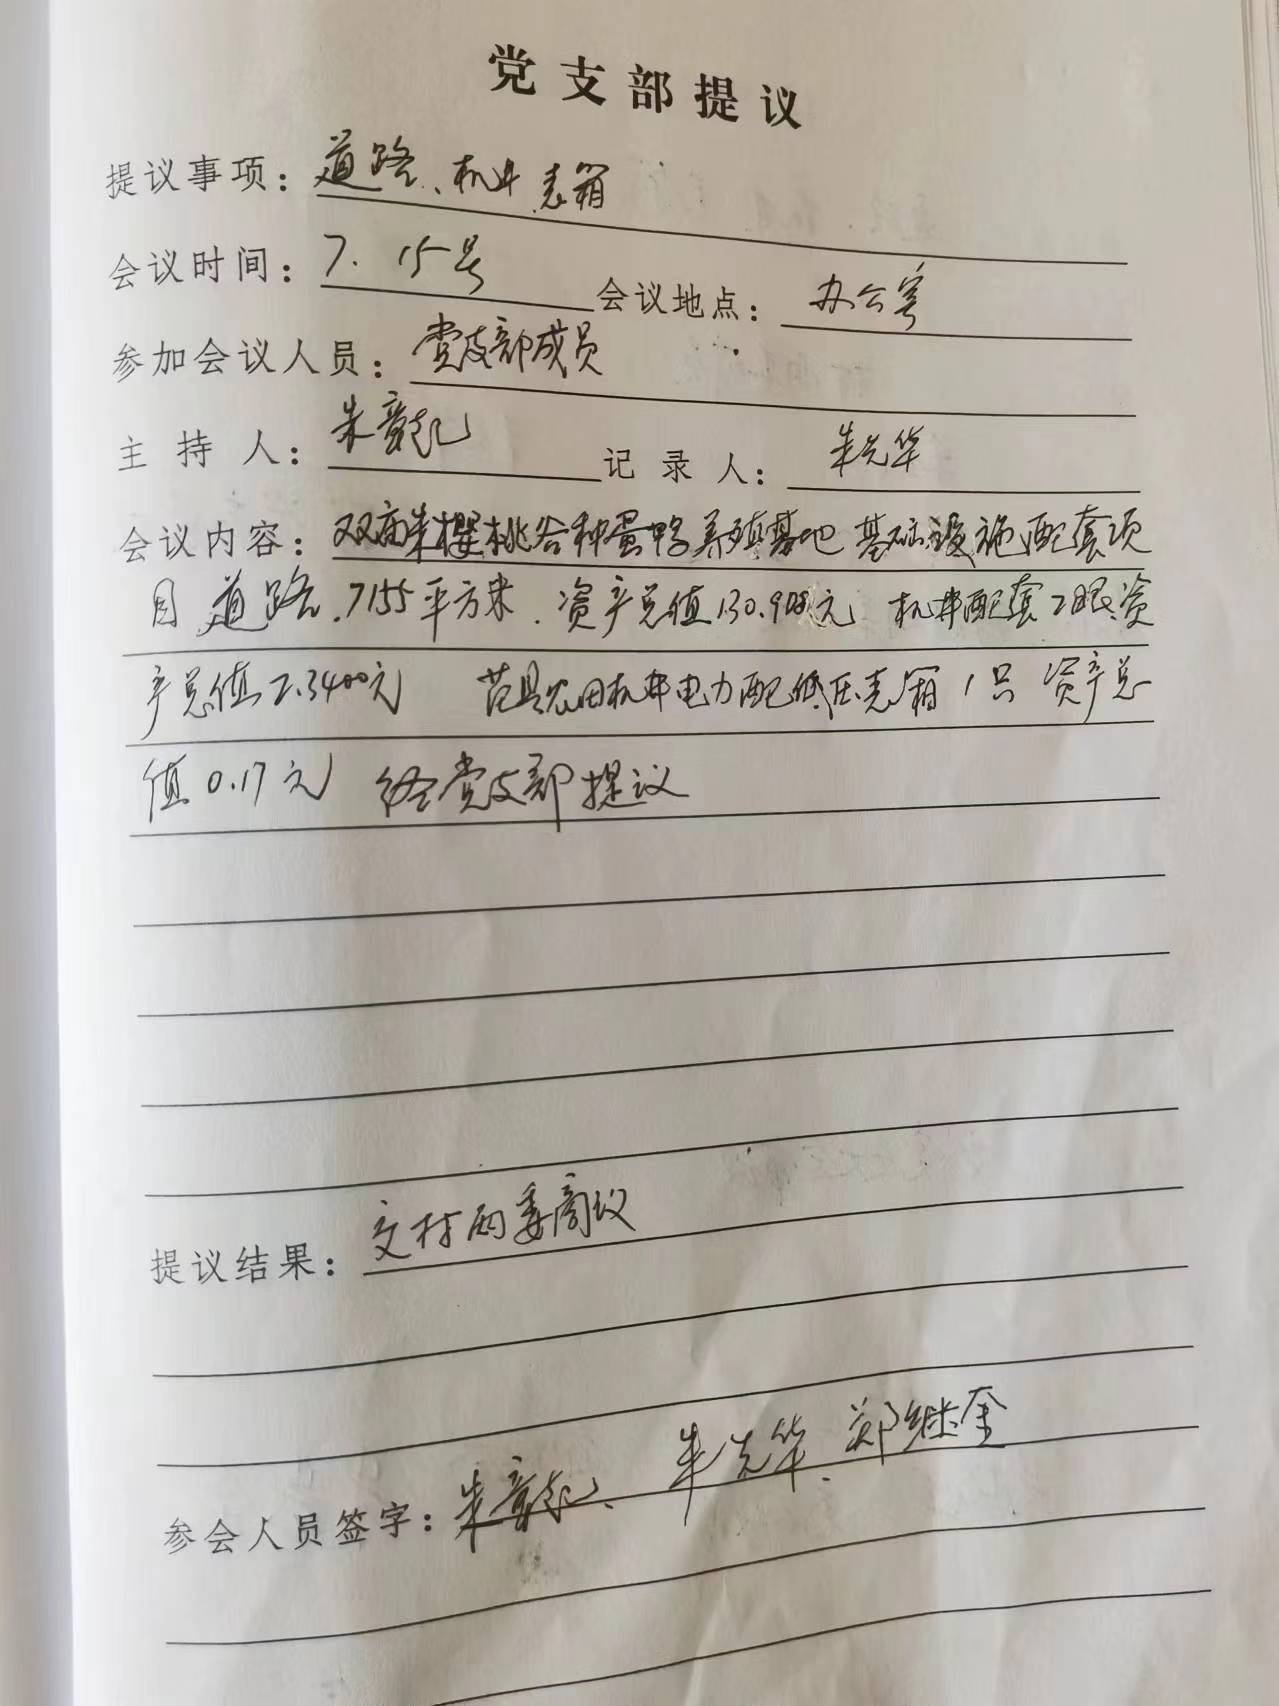 党支部提议
提议事项：道路、机井、表箱
会议时间：7.15号 会议地点：办公室
参加会议人员：党支部成员
主持人：朱章记 记录人：朱先华
会议内容：双庙朱樱桃谷种蛋鸭养殖基地基础设施配套项
目 道路.7155平方米.资产总值130.908元 机井配套2眼.资
产总值2.3400元 范县农田机井电力配低压表箱1只 资产总
值0.17元 经党支部提议
提议结果：交村两委商议
参会人员签字：朱章记、朱先华、郑继奎